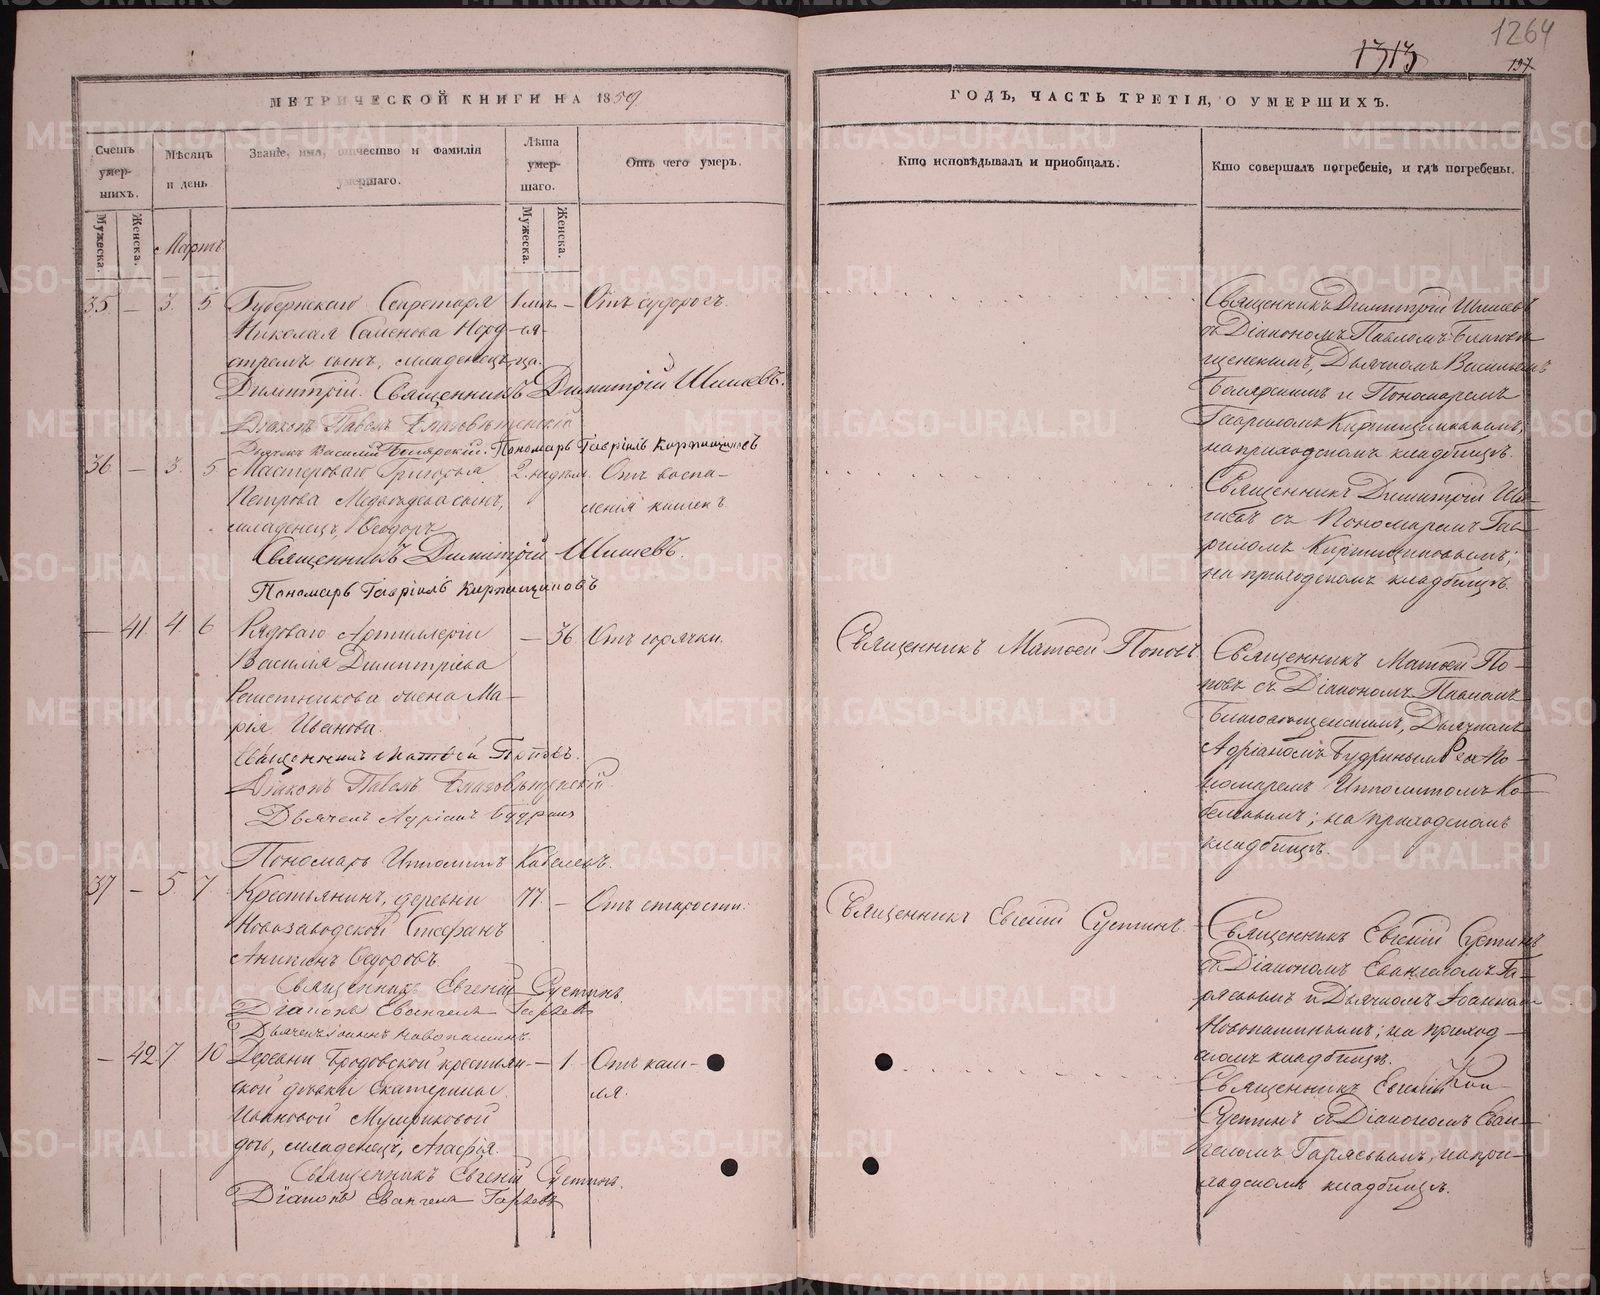 1264
1313
197
МЕТРИЧЕСКОЙ КНИГИ НА 1859
ГОДЪ, ЧАСТЬ ТРЕТІЯ, О УМЕРШИХЪ.
Счетъ умерших.
Мѣсяцъ и день
Званіе, имя, отчество и фамилія умершаго.
Лѣта умершаго.
Отъ чего умеръ.
Кто исповѣдывалъ и пріобщалъ.
Кто совершалъ погребеніе, и гдѣ погребены.
Мужеска. Женска.
Мужеска. Женска.
Мартъ
35 — 3. 5
Губернскаго Секретаря
Николая Семенова Норд-
стремъ сынъ, младенецъ
Димитрій.
— Отъ судорогъ.
Священникъ Димитрій Шишевъ.
Діаконъ Павелъ Благовѣщенскій
Дьячекъ Василій Боярскій. Пономарь Гавріилъ Кирпищиковъ
Священникъ Димитрій Шишевъ
съ Діакономъ Павломъ Благовѣ-
щенскимъ, Дьячкомъ Васильемъ
Боярскимъ и Пономаремъ
Гавриломъ Кирпищиковымъ,
на приходскомъ кладбищѣ.
36 — 3. 5
Мастероваго Григорья
Петрова Медвѣдева сынъ,
младенецъ, Ѳеодоръ
2. недѣль.
Отъ воспа-
ленія кишекъ
Священникъ Димитрій Шишевъ.
Пономарь Гавріилъ Кирпищиковъ
Священникъ Димитрій Ши-
шевъ съ Пономаремъ Гав-
риломъ Кирпищиковымъ;
на приходскомъ кладбищѣ.
— 41 4. 6
Рядоваго Артиллеріи
Василія Димитріева
Решетникова жена Ма-
рія Иванова.
— 36 Отъ горячки.
Священникъ Матѳей Поповъ.
Діаконъ Павелъ Благовѣщенскій
Дьячекъ Адріанъ Будринъ
Пономарь Ипполитъ Кобелевъ.
Священникъ Матѳей Поповъ
Священникъ Матѳей По-
повъ съ Діакономъ Павломъ
Благовѣщенскимъ, Дьячкомъ
Адріаномъ Будринымъ и По-
номаремъ Ипполитомъ Ко-
белевымъ; на приходскомъ
кладбищѣ.
37 — 5. 7.
Крестьянинъ, деревни
Новозаводской Стефанъ
Аникинъ Ѳедоровъ.
77. — Отъ старости.
Священникъ Евгеній Сустинъ.
Діаконъ Евангелъ Гаряевъ
Дьячекъ Іоаннъ Новопашинъ.
Священникъ Евгеній Сустинъ.
Священникъ Евгеній Сустинъ
съ Діакономъ Евангеломъ Га-
ряевымъ и Дьячкомъ Іоанномъ
Новопашинымъ; на приход-
скомъ кладбищѣ.
— 42 7 10
Деревни Бродовской крестьян-
ской дѣвки Екатерины
Ивановой Мумриковой
дочь, младенецъ, Агафія.
— 1 Отъ каш-
ля.
Священникъ Евгеній Сустинъ.
Діаконъ Евангелъ Гаряевъ
Священникъ Евгеній
Сустинъ съ Діакономъ Еван-
геломъ Гаряевымъ, на при-
ходскомъ кладбищѣ.
METRIKI.GASO-URAL.RU